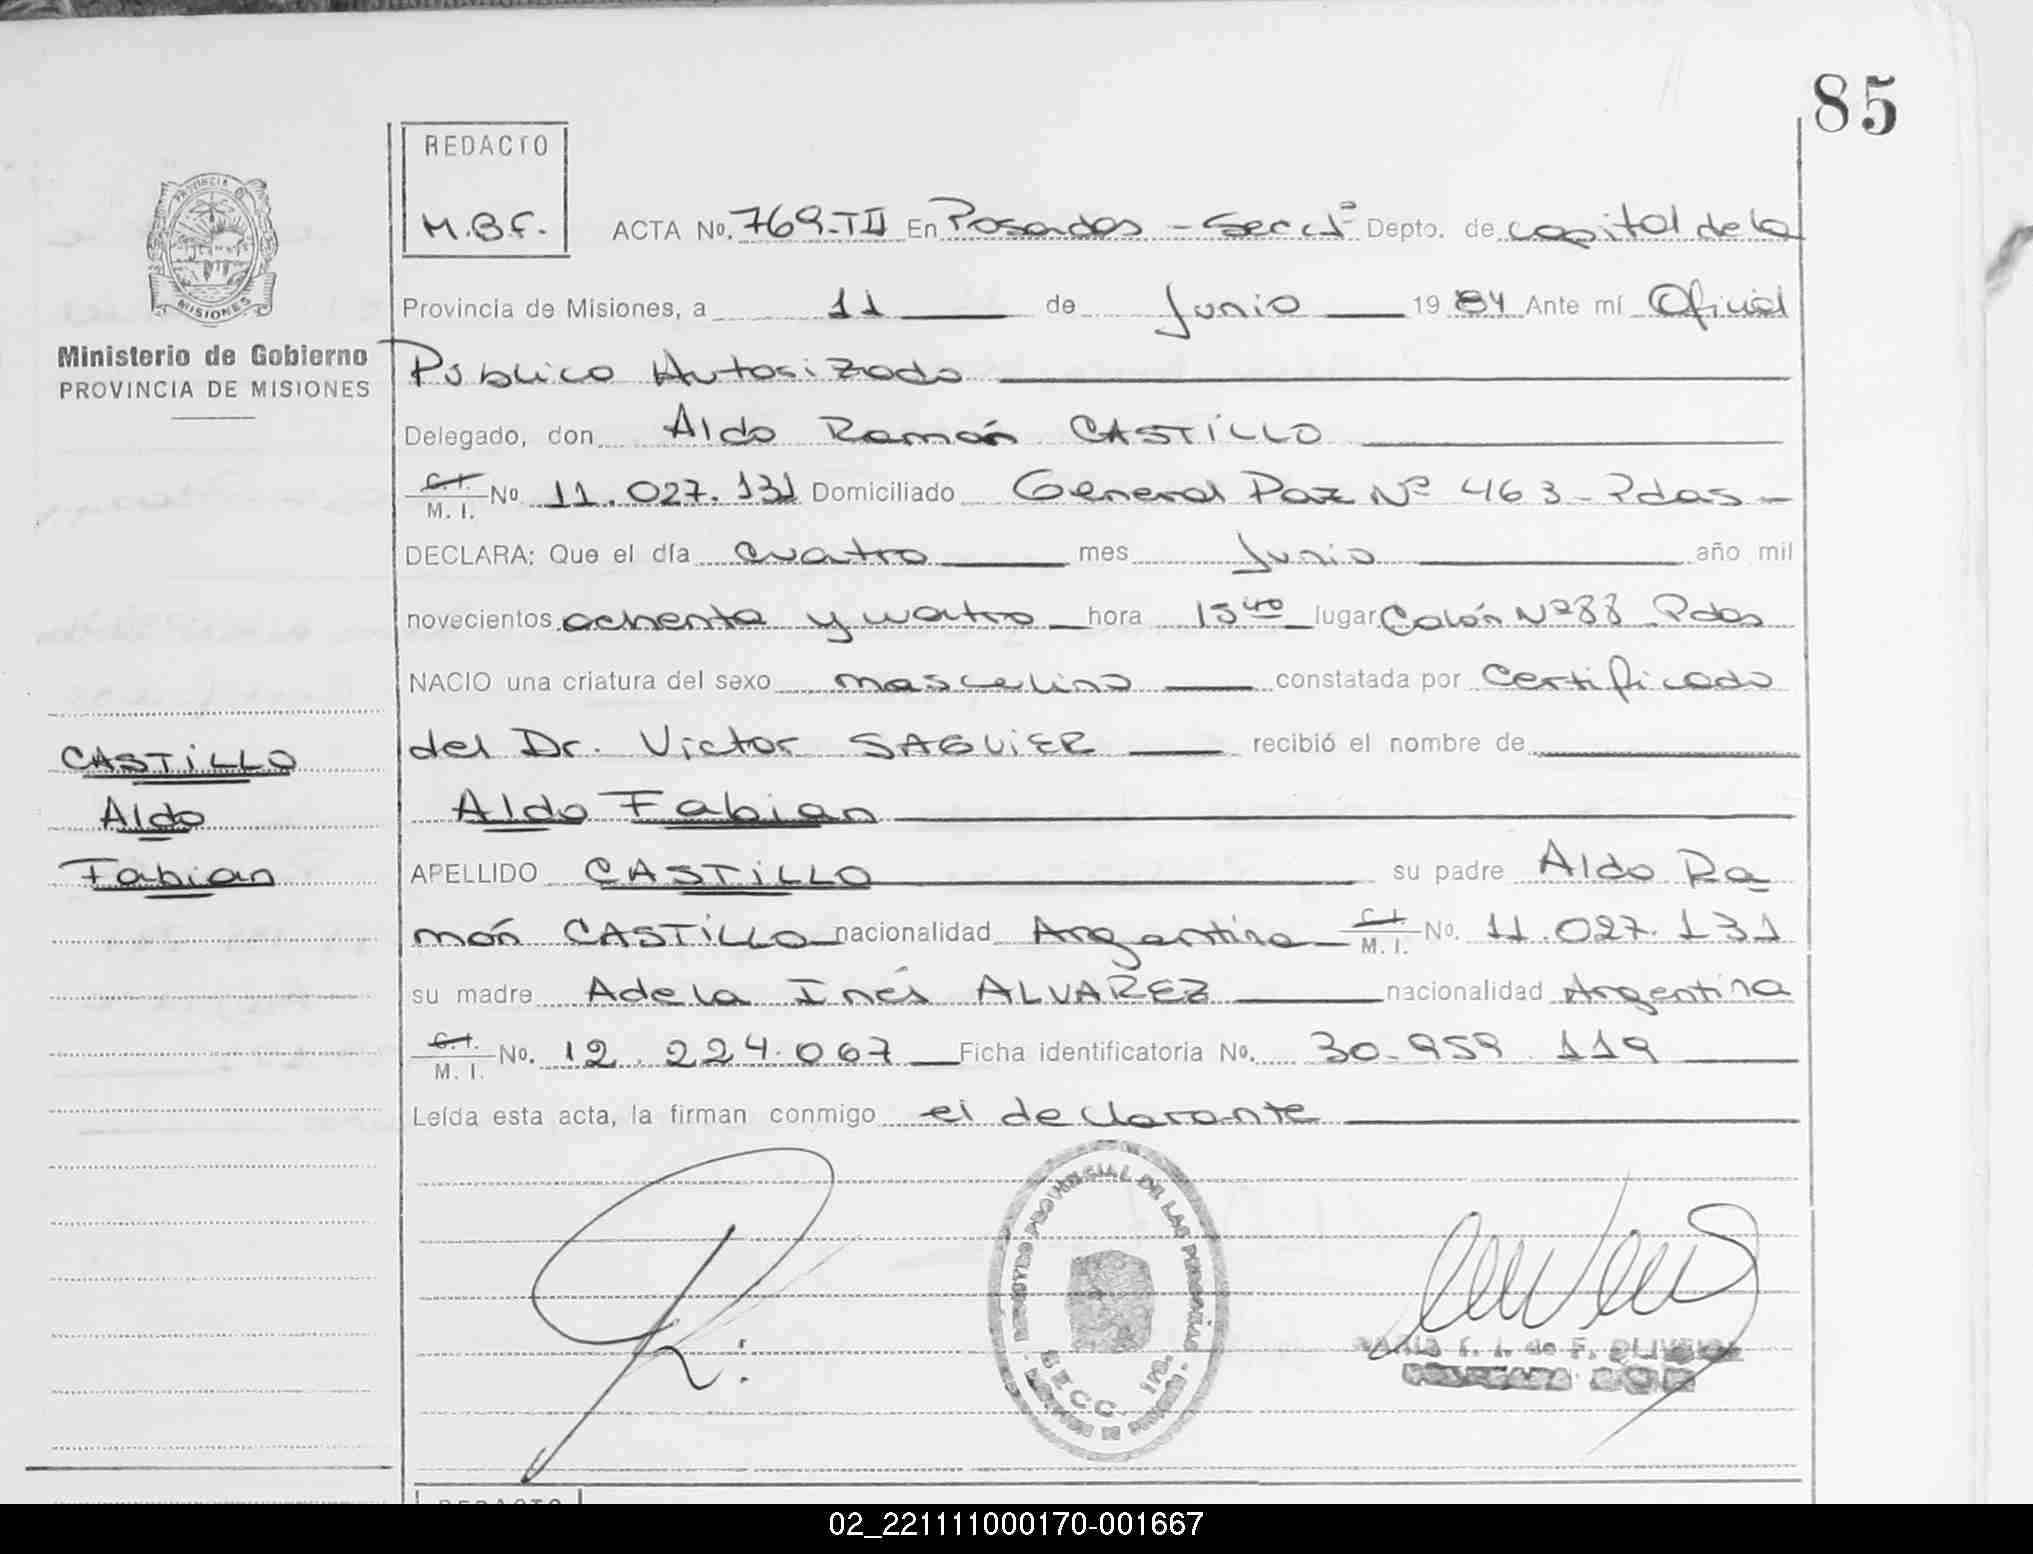 85
REDACTO
M.B.F.
ACTA No. 769-TII En Posadas - Secc 1ª Depto. de capital de la
PROVINCIA DE
MISIONES
Provincia de Misiones, a 11 de Junio 1984 Ante mí Oficial
Ministerio de Gobierno
PROVINCIA DE MISIONES
Público Autorizado
Delegado, don Aldo Ramón CASTILLO
C. I. M. I. No 11.027.131 Domiciliado General Paz Nº 463 - Pdas -
DECLARA: Que el día cuatro mes Junio año mil
novecientos ochenta y cuatro hora 15 40 lugar Colón Nº 88 Pdas
NACIO una criatura del sexo masculino constatada por Certificado
del Dr. Victor SAGUIER recibió el nombre de
CASTILLO
Aldo
Fabian
Aldo Fabian
APELLIDO CASTILLO su padre Aldo Ra
món CASTILLO nacionalidad Argentina C. I. M. I. No. 11.027.131
su madre Adela Inés ALVAREZ nacionalidad Argentina
C. I. M. I. No. 12.224.067 Ficha identificatoria No. 30.959.119
Leída esta acta, la firman conmigo el declarante
REGISTRO PROVINCIAL DE LAS PERSONAS
SECC. 1ra.
de F. OLIVEIRA
REDACTO
02_221111000170-001667